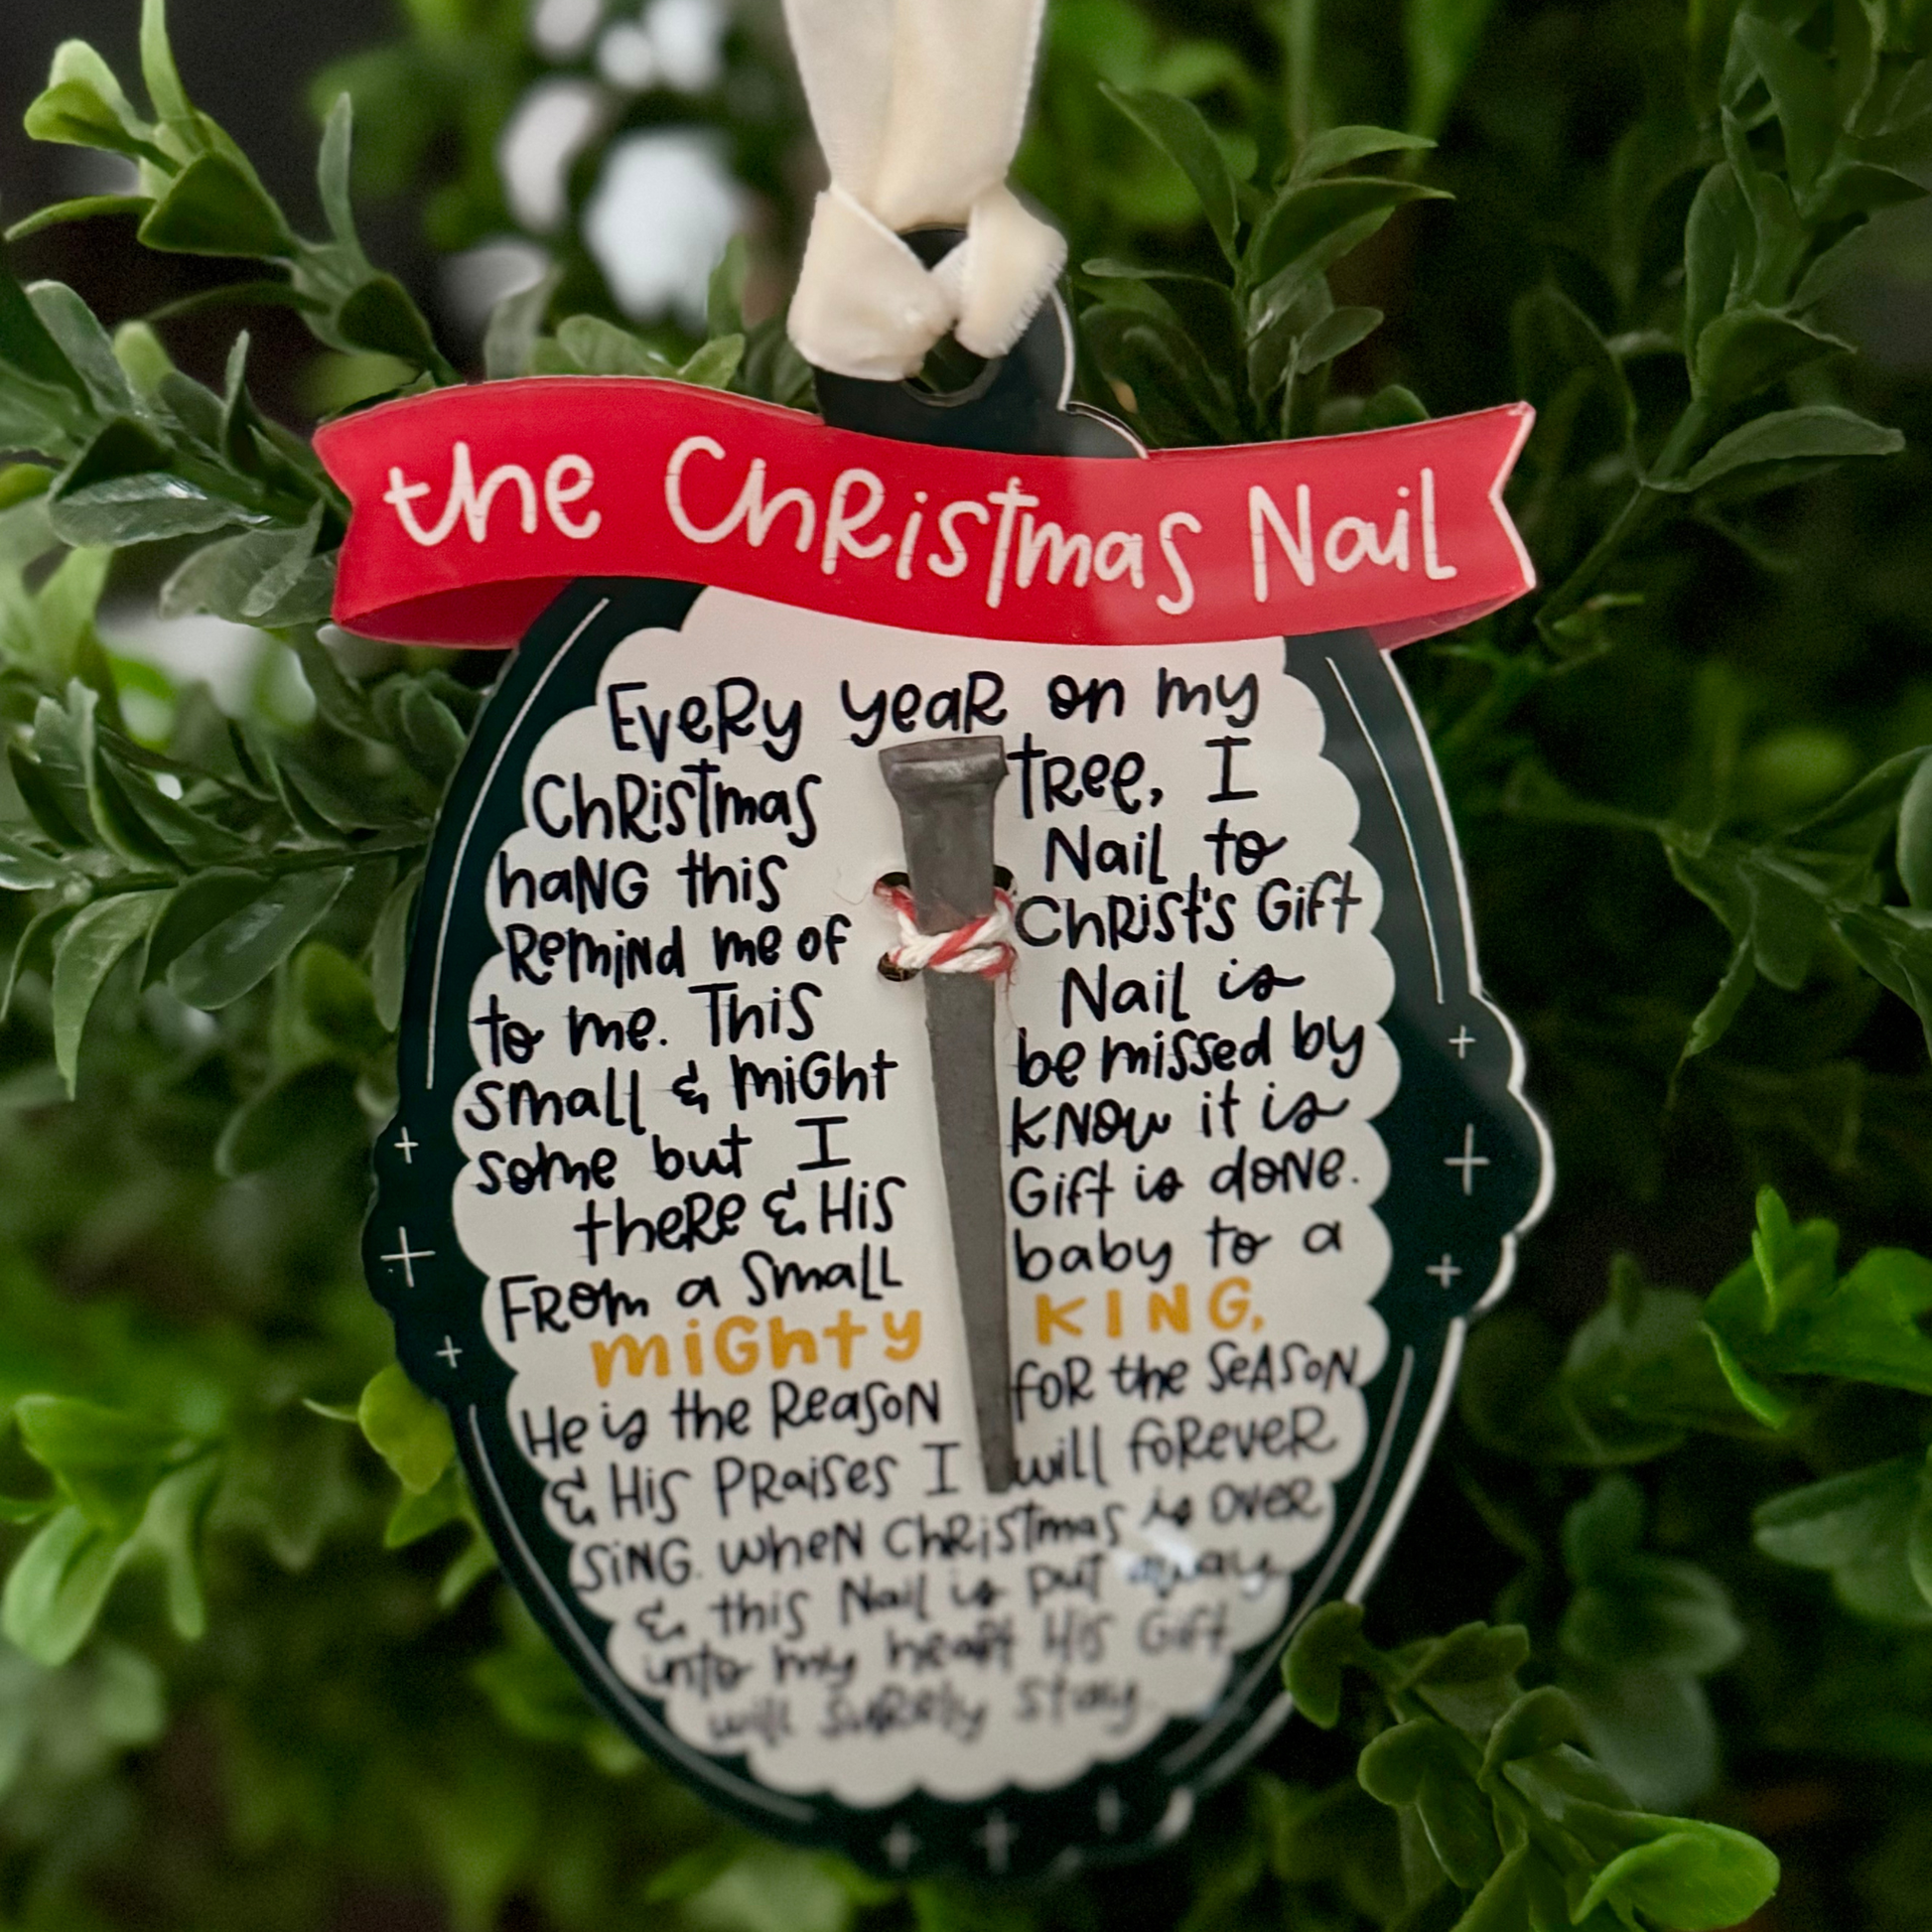 the Christmas Nail
Every year on my
Christmas tree, I
hang this Nail to
Remind me of Christ's Gift
to me. This Nail is
small & might be missed by
some but I know it is
there & His Gift is done.
From a small baby to a
mighty KING,
He is the Reason for the season
& His Praises I will forever
sing. when Christmas is over
& this Nail is put away
into my heart His Gift
will surely stay.